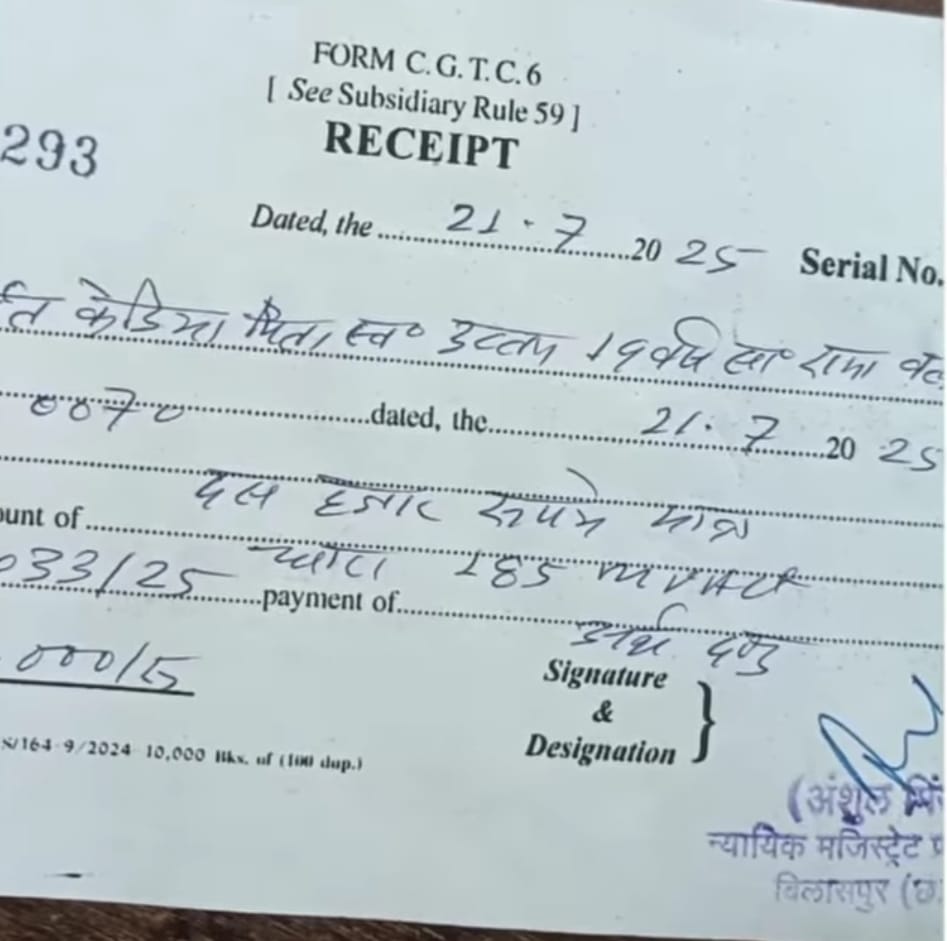 FORM C.G.T.C.6
[ See Subsidiary Rule 59 ]
293
RECEIPT
Dated, the 21.7 2025 Serial No.
केडिया पिता स्व० उत्तम 19 वर्ष सा०
0070 dated, the 21.7 2025
दस हजार रूपये मात्र
ount of धारा 185 mv Act
033/25 payment of अर्थ दण्ड
000/5
Signature
&
Designation
164-9/2024-10,000 Bks. of (100 dup.)
(अंशुल
न्यायिक मजिस्ट्रेट प्र
बिलासपुर (छ.